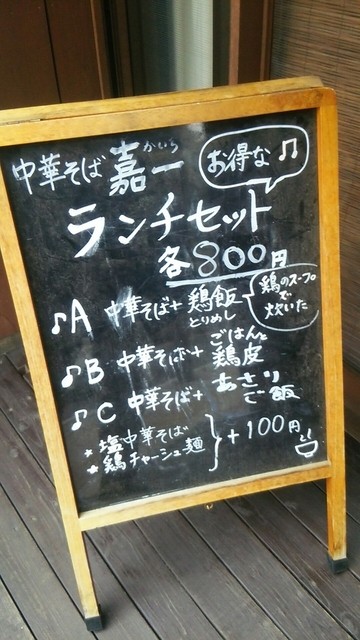 中華そば 嘉一
かいち
お得な♫
ランチセット
各800円
♪A 中華そば+鶏飯
とりめし
鶏のスープ
で
炊いた
♪B 中華そば+ごはんと
鶏皮
♪C 中華そば+あさり
ご飯
★塩中華そば
★鶏チャーシュー麺
+100円